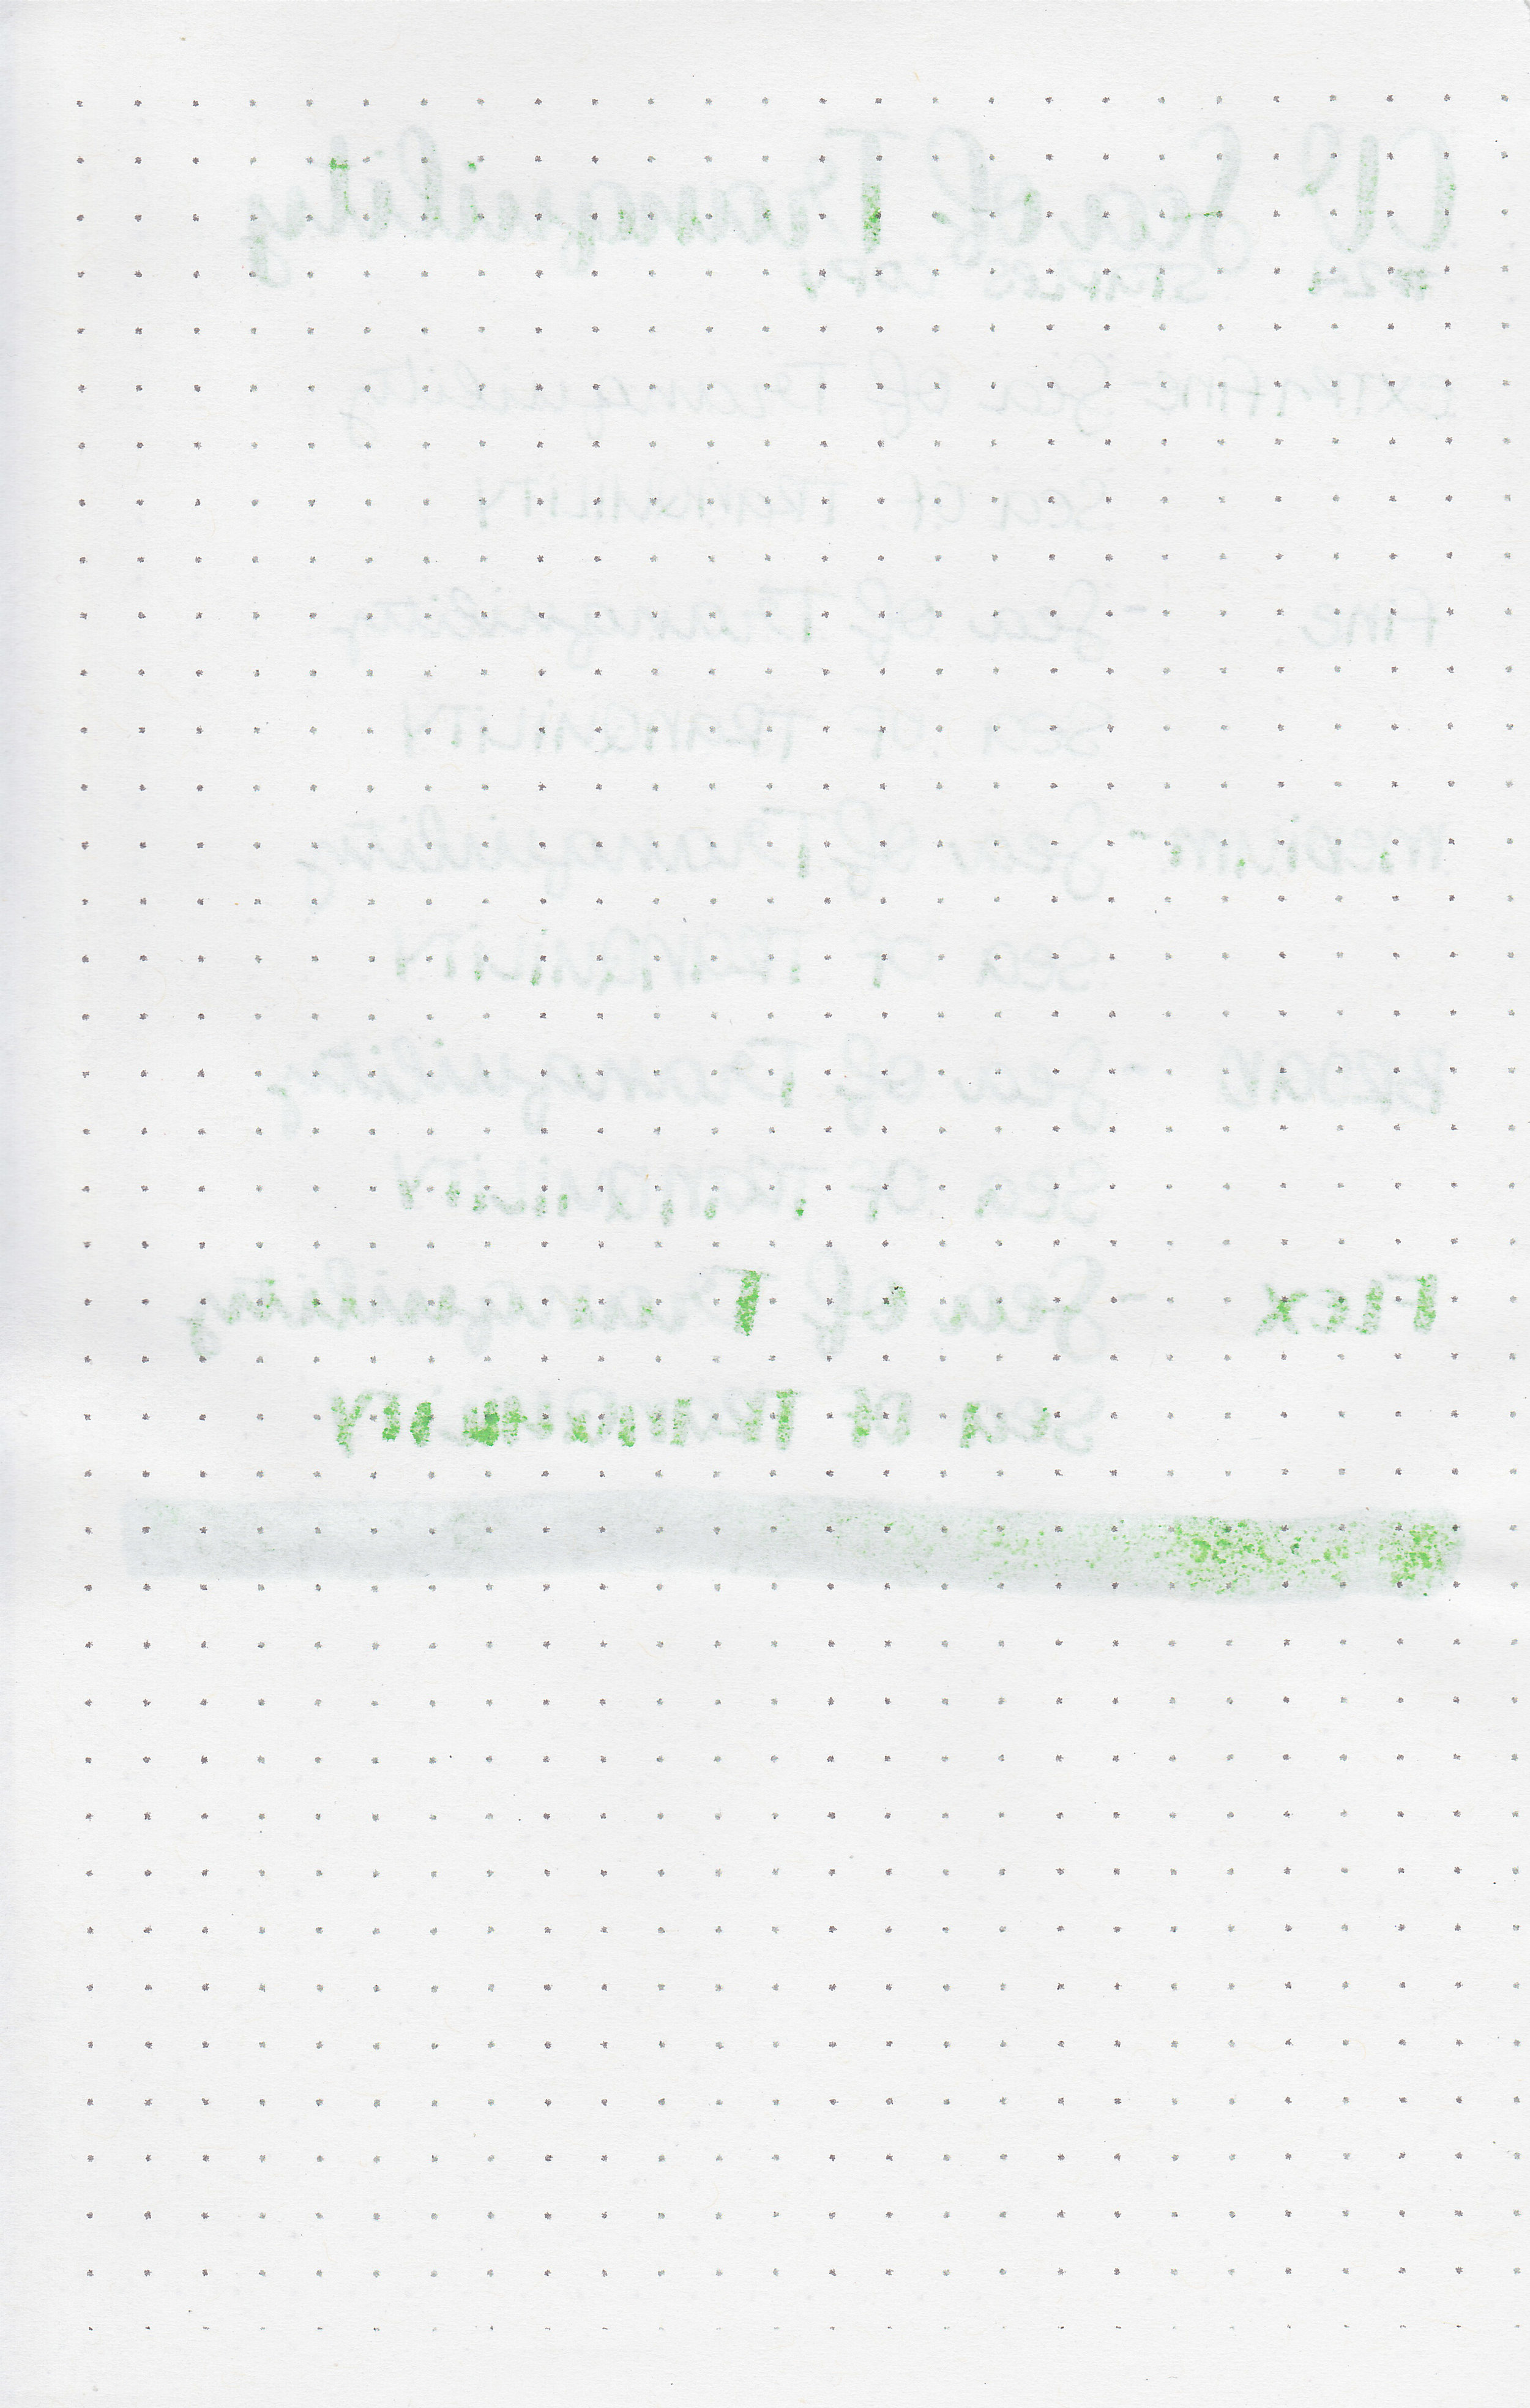 CV Sea of Tranquility
#24 Staples Copy
Extra fine - Sea of Tranquility
Sea of Tranquility
Fine - Sea of Tranquility
Sea of Tranquility
Medium - Sea of Tranquility
Sea of Tranquility
Broad - Sea of Tranquility
Sea of Tranquility
Flex - Sea of Tranquility
Sea of Tranquility